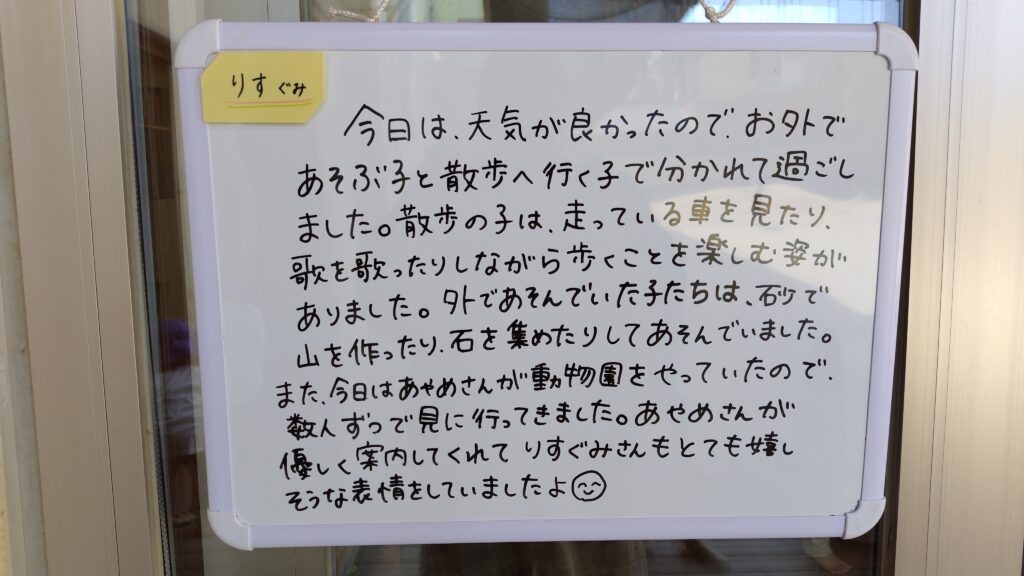 りすぐみ
今日は、天気が良かったので、お外で
あそぶ子と散歩へ行く子で分かれて過ごし
ました。散歩の子は、走っている車を見たり、
歌を歌ったりしながら歩くことを楽しむ姿が
ありました。外であそんでいた子たちは、砂で
山を作ったり、石を集めたりしてあそんでいました。
また、今日はあやめさんが動物園をやっていたので、
数人ずつで見に行ってきました。あやめさんが
優しく案内してくれて りすぐみさんもとても嬉し
そうな表情をしていましたよ